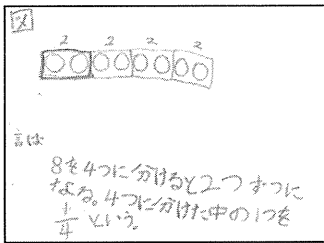 図
2 2 2 2
言は
8を4つに分けると2つずつに
なる。4つに分けた中の1つを
1/4 という。